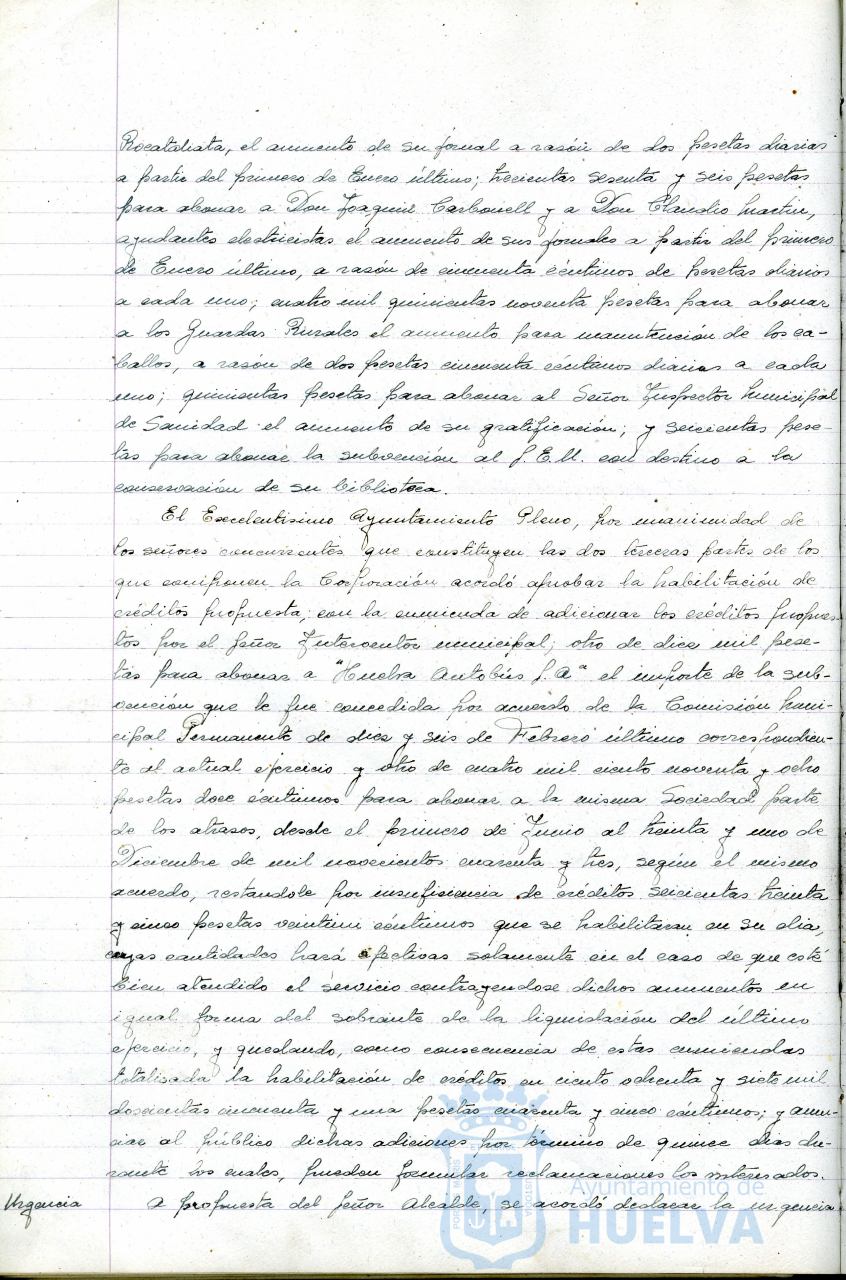 Rocatallata, el aumento de su jornal a razón de dos pesetas diarias
a partir del primero de Enero último; trecientas sesenta y seis pesetas
para abonar a Don Joaquin Carbonell y a Don Claudio Martin,
ayudantes electricistas el aumento de sus jornales a partir del primero
de Enero último, a razón de cincuenta céntimos de pesetas diarios
a cada uno; cuatro mil quinientas noventa pesetas para abonar
a los Guardas Rurales el aumento para manutención de los ca-
ballos, a razón de dos pesetas cincuenta céntimos diarios a cada
uno; quinientas pesetas para abonar al Señor Inspector Municipal
de Sanidad el aumento de su gratificación; y seicientas pese-
tas para abonar la subvención al S.E.U. con destino a la
conservación de su biblioteca.
El Excelentisimo Ayuntamiento Pleno, por unanimidad de
los señores concurrentes que constituyen las dos terceras partes de los
que componen la Corporación acordó aprobar la habilitación de
créditos propuesta; con la enmienda de adicionar los créditos propues-
tos por el Señor Interventor municipal; otro de diez mil pese-
tas para abonar a "Huelva Autobús S.A" el importe de la sub-
vención que le fue concedida por acuerdo de la Comisión Muni-
cipal Permanente de diez y seis de Febrero último correspondien-
te al actual ejercicio y otro de cuatro mil ciento noventa y ocho
pesetas doce céntimos para abonar a la misma Sociedad parte
de los atrasos, desde el primero de Junio al treinta y uno de
Diciembre de mil novecientos cuarenta y tres, según el mismo
acuerdo, restandole por insuficiencia de créditos seicientas treinta
y cinco pesetas veintiun céntimos que se habilitaran en su dia,
cuyas cantidades hará efectivas solamente en el caso de que esté
bien atendido el servicio contrayendose dichos aumentos en
igual forma del sobrante de la liquidación del último
ejercicio, y quedando, como consecuencia de estas enmiendas
totalisada la habilitación de créditos en ciento ochenta y siete mil
doscientas cincuenta y una pesetas cuarenta y cinco céntimos; y anun-
ciar al público dichas adiciones por término de quince dias du-
rante los cuales, puedan formular reclamaciones los interesados.
Urgencia A propuesta del Señor Alcalde, se acordó declarar la urgencia
Ayuntamiento de
HUELVA